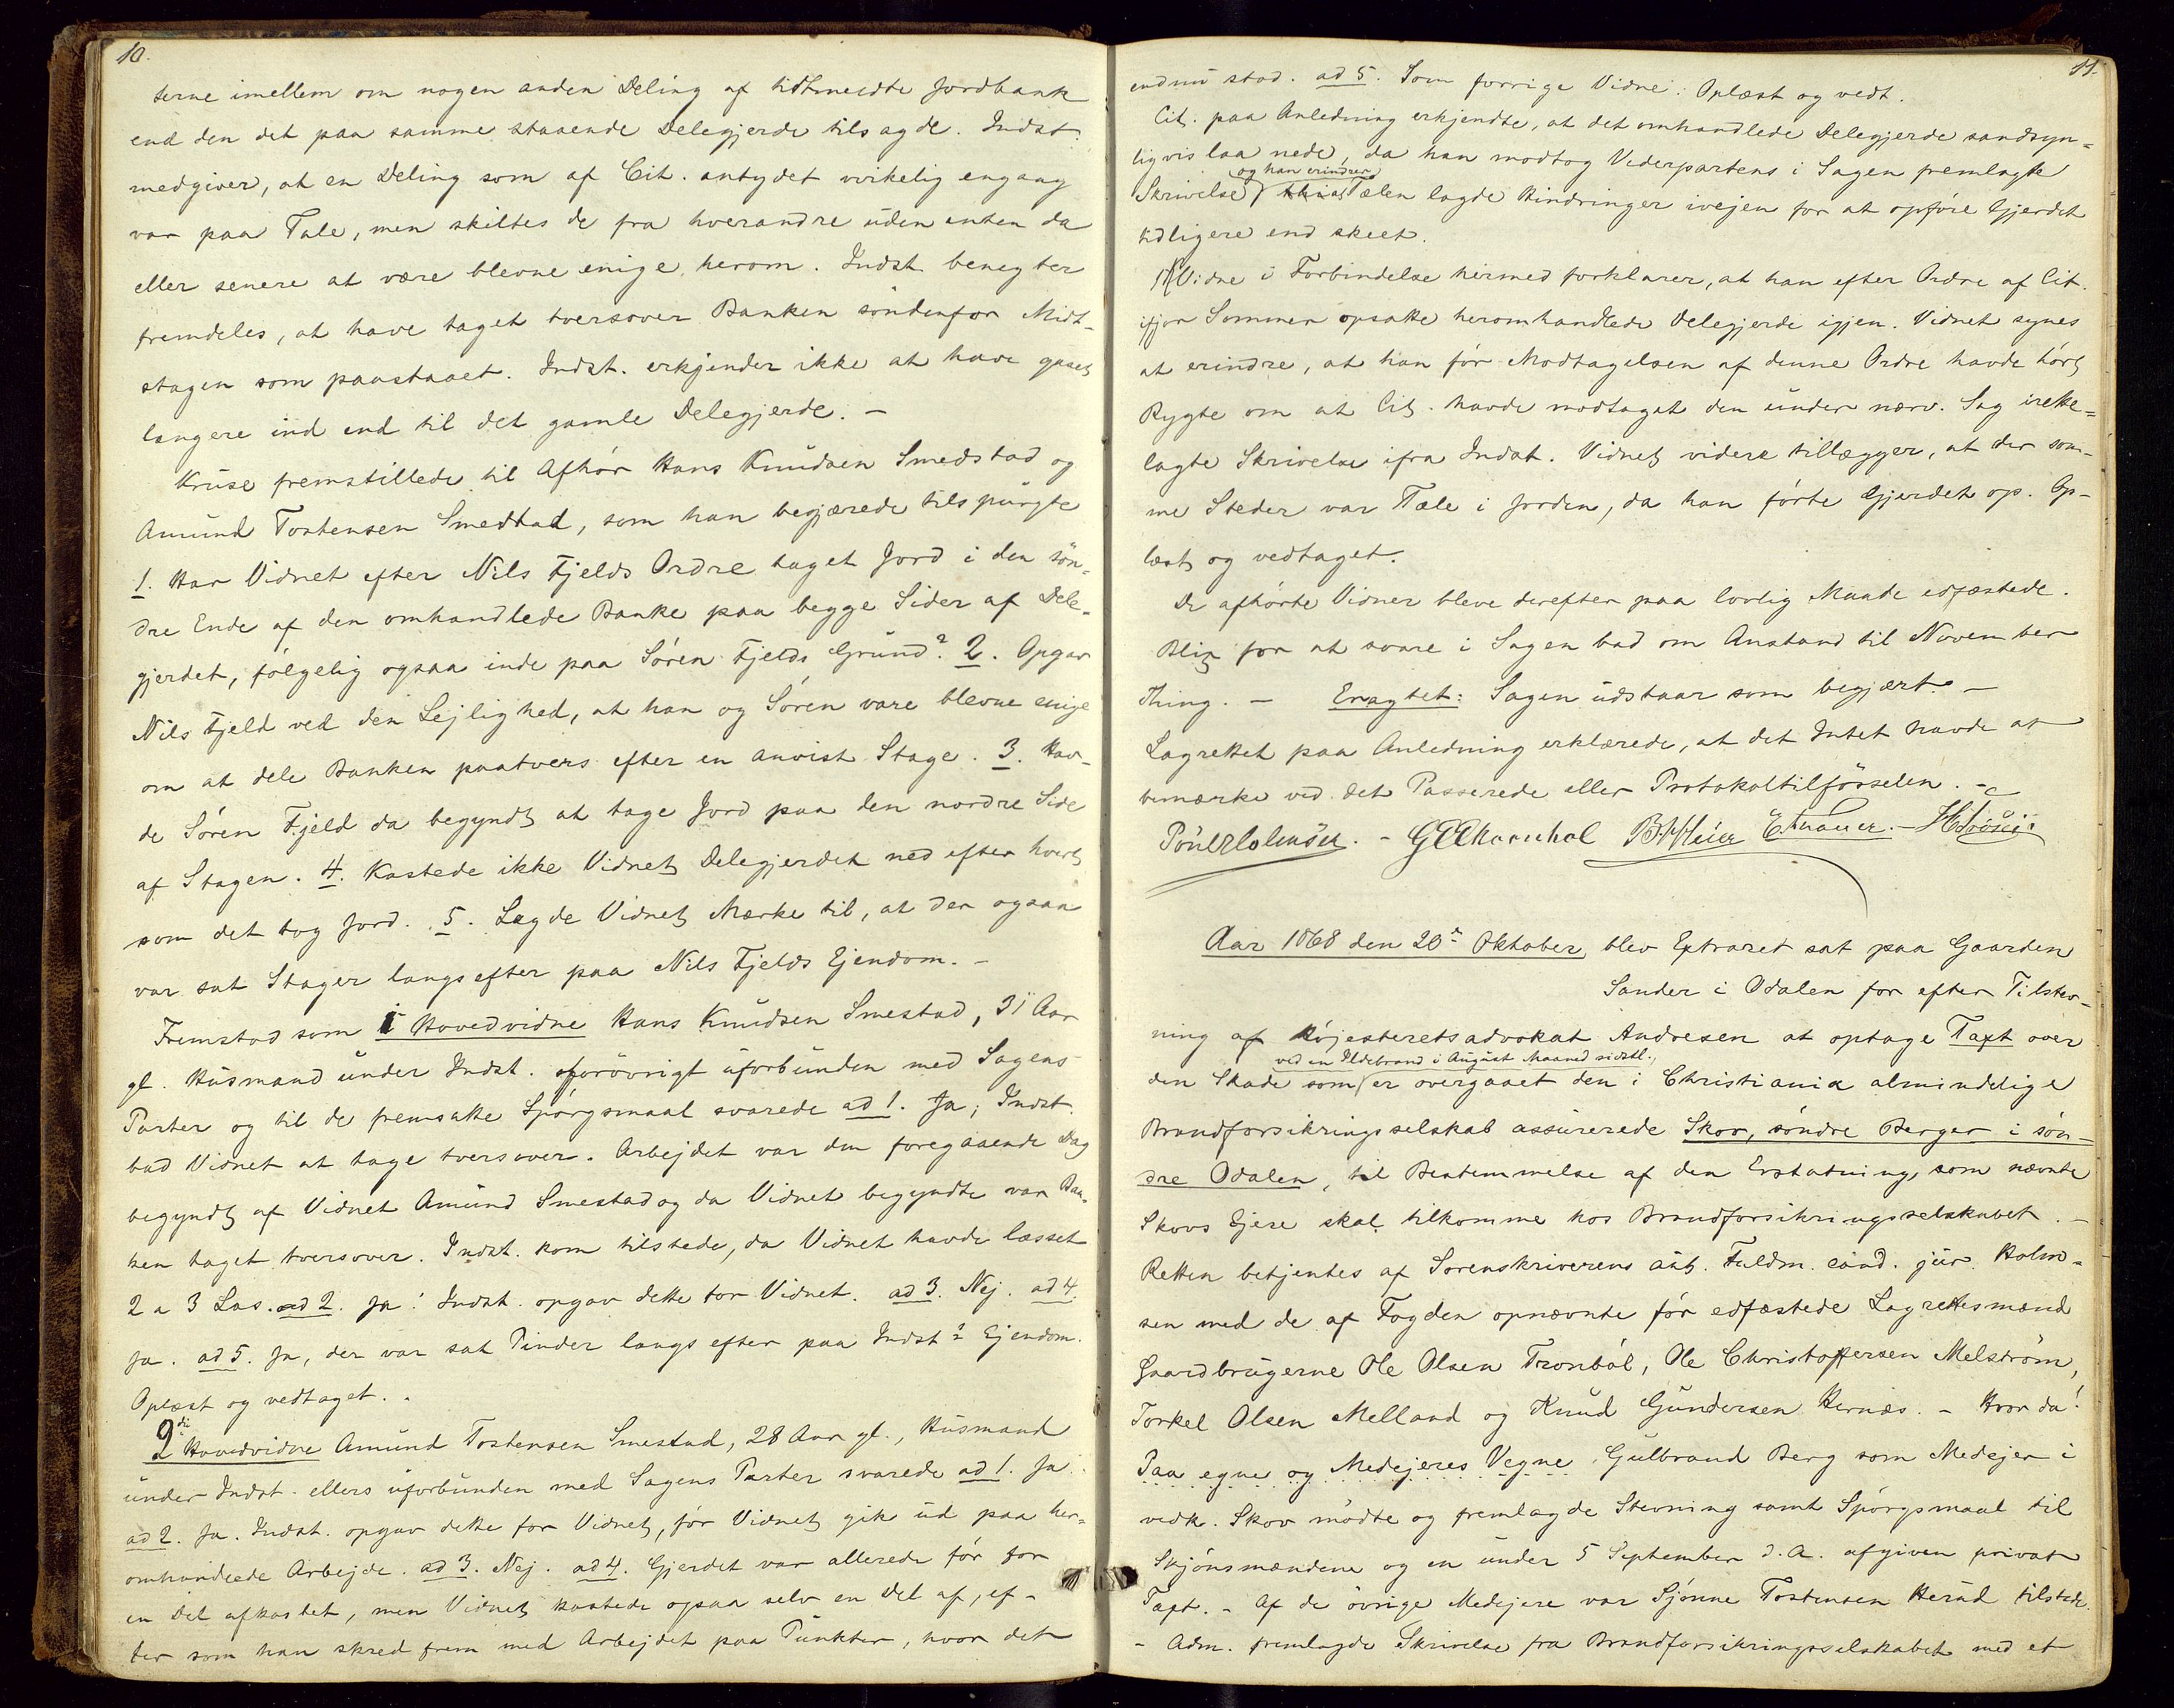 10.
terne imellem om nogen anden Deling af tidtmeldte Jordbank
end den det paa samme staaende Delegjerde tilsagde. Indst.
medgiver, at en Deling som af Cit. antydet virkelig engang
var paa Tale, men skiltes de fra hverandre uden enten da
eller senere at være blevne enige herom. Indst. benegter
fremdeles, at have taget tversover Banken søndenfor Midt-
stagen som paastaaet. Indst. erkjender ikke at have gaaet
længere ind end til det gamle Delegjerde. –
Kruse fremstillede til Afhør Hans Knudsen Smedstad og
Amund Tostensen Smedstad, som han begjærede tilspurgte
1. Har Vidnet efter Nils Fjelds Ordre taget Jord i den søn-
dre Ende af den omhandlede Banke paa begge Sider af Dele-
gjerdet, følgelig ogsaa inde paa Søren Fjelds Grund? 2. Opgav
Nils Fjeld ved den Lejlighed, at han og Søren vare blevne enige
om at dele Banken paatvers efter en anvist Stage. 3. Hav-
de Søren Fjeld da begyndt at tage Jord paa den nordre Side
af Stagen. 4. Kastede ikke Vidnet Delegjerdet ned efter hvert
som det tog Jord. 5. Lagde Vidnet Mærke til, at der ogsaa
var sat Stager langsefter paa Nils Fjelds Ejendom. –
Fremstod som 1 Hovedvidne Hans Knudsen Smestad, 31 Aar
gl. Husmand under Indst. forøvrigt uforbunden med Sagens
Parter og til de fremsatte Spørgsmaal svarede ad 1. Ja; Indst.
bad Vidnet at tage tversover. Arbejdet var den foregaaende Dag
begyndt af Vidnet Amund Smestad og da Vidnet begyndte var Ban-
ken taget tversover. Indst. kom tilstede, da Vidnet havde læsset
2 a 3 Læs. ad 2. Ja! Indst. opgav dette for Vidnet. ad 3. Nej. ad 4.
Ja. ad 5. Ja, der var sat Pinder langs efter paa Indsts Ejendom.
Oplæst og vedtaget. .
2det Hovedvidne Amund Tostensen Smestad, 28 Aar gl., Husmand
under Indst. ellers uforbunden med Sagens Parter svarede ad 1. Ja.
ad 2. Ja. Indst. opgav dette for Vidnet, før Vidnet gik ud paa her-
omhandlede Arbejde. ad 3. Nej. ad 4. Gjerdet var allerede før for
en Del afkastet, men Vidnet kastede ogsaa selv en Del af, ef-
ter som han skred frem med Arbejdet paa Punkter, hvor det
11.
endnu stod. ad 5. Som forrige Vidne. Oplæst og vedt.
Cit. paa Anledning erkjendte, at det omhandlede Delegjerde sandsyn-
ligvis laa nede, da han modtog Vederpartens i Sagen fremlagte
og han erindrer
Skrivelse, Tælen lagde Hindringer ivejen for at opføre Gjerdet
tidligere end skeet.
1ste Vidne i Forbindelse hermed forklarer, at han efter Ordre af Cit.
ifjor Sommer opsatte heromhandlede Delegjerde igjen. Vidnet synes
at erindre, at han før Modtagelsen af denne Ordre havde hørt
Rygte om at Cit. havde modtaget den under nærv. Sag irette-
lagte Skrivelse ifra Indst. Vidnet videre tillægger, at der som-
me Steder var Tæle i Jorden, da han førte Gjerdet op. Op-
læst og vedtaget.
De afhørte Vidner bleve derefter paa lovlig Maade edfæstede.
Blix for at svare i Sagen bad om Anstand til November
Thing. – Eragtet: Sagen udstaar som begjært. –
Lagrettet paa Anledning erklærede, at det Intet havde at
bemærke ved det Passerede eller Protokoltilførselen. –
Aar 1868 den 20de Oktober blev Extraret sat paa Gaarden
Sander i Odalen for efter Tilstev-
ning af Højesteretsadvokat Andresen at optage Taxt over
ved en Ildebrand i August Maaned sidstl.
den Skade som er overgaaet den i Christiania almindelige
Brandforsikringsselskab assurerede Skov, søndre Berger i søn-
dre Odalen, til Bestemmelse af den Erstatning, som nævnte
Skovs Ejere skal tilkomme hos Brandforsikringsselskabet. –
Retten betjentes af Sorenskriverens aut. Fuldm. cand. jur. Holm-
sen med de af Fogden opnævnte før edfæstede Lagrettesmænd
Gaardbrugerne Ole Olsen Tronbøl, Ole Christoffersen Melstrøm,
Torkel Olsen Melland og Knud Gundersen Hernæs. – Hvor da!
Paa egne og Medejeres Vegne Gulbrand Berg som Medejer i
vedk. Skov mødte og fremlagde Stevning samt Spørgsmaal til
Skjønsmændene og en under 5 September d.A. afgiven privat
Taxt. – Af de øvrige Medejere var Sjønne Tostensen Herud tilstede.
– Adm. fremlagde Skrivelse fra Brandforsikringsselskabet med et